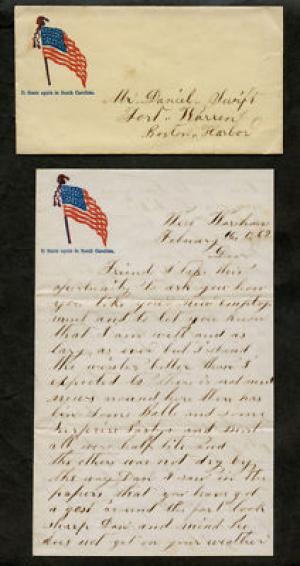 It floats again in South Carolina.
Mr. Daniel Swift
Fort Warren
Boston Harbor
It floats again in South Carolina.
West Wareham
Febuary 16
Dear
Friend I this
opertunity to ask you how
you like you new employ
ment and to let you know
that I am well and as
lazy as ever but I stand
the winter better than I
expected to there is not much
news around here then has
bin some Balls and some
surprise Partys and most
all were half lit and
the others was not dry by
the way Dan I saw in the
papers that you have got
a around the fort look
sharp Dan and mind he
does not get on your weather